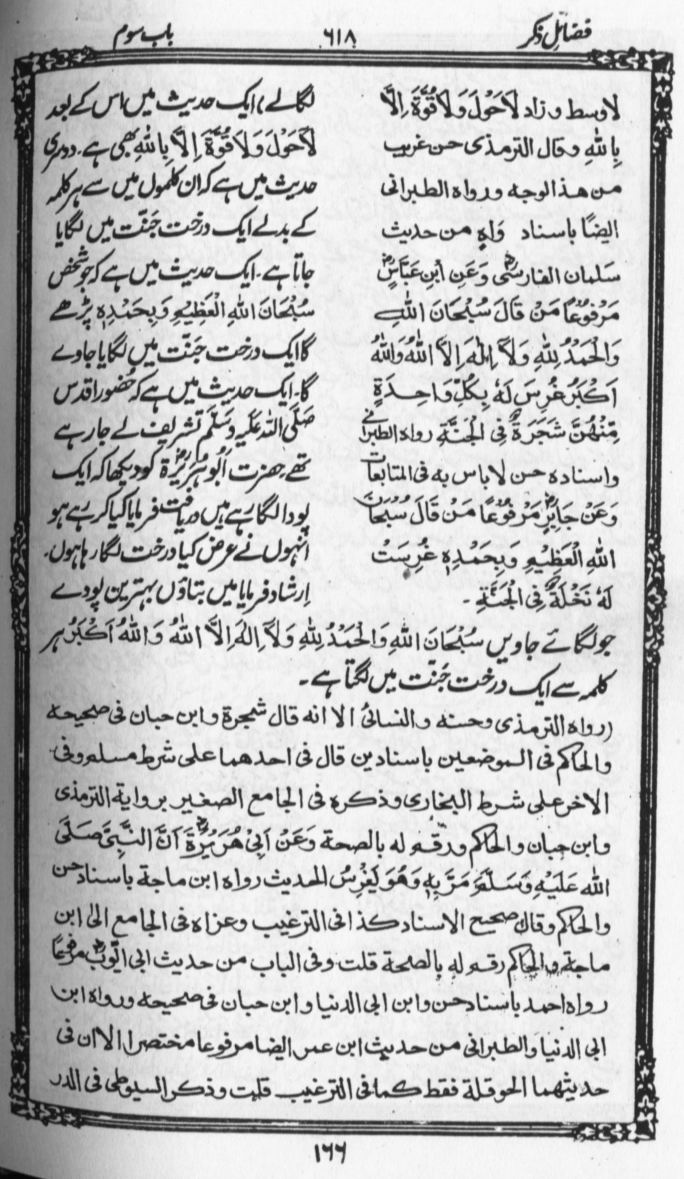 فضائلِ ذکر
۶۱۸
باب سوم
لاوسط وزاد لَاحَوْلَ وَلَا قُوَّةَ اِلَّا
بِاللّٰهِ وقال الترمذی حسن غریب
من هذا الوجه ورواه الطبرانی
ایضًا باسناد وَاهٍ من حدیث
سَلمان الفارسیؓ وَعَنِ ابْنِ عَبَّاسٍؓ
مَرْفُوْعًا مَنْ قَالَ سُبْحَانَ اللّٰهِ
وَالْحَمْدُ لِلّٰهِ وَلَا اِلٰهَ اِلَّا اللّٰهُ وَاللّٰهُ
اَكْبَرُ غُرِسَ لَهٗ بِكُلِّ وَاحِدَةٍ
مِّنْهُنَّ شَجَرَةٌ فِی الْجَنَّةِ رواه الطبرانی
واسناده حسن لاباس به فی المتابعات
وَعَنْ جَابِرٍؓ مَرْفُوْعًا مَنْ قَالَ سُبْحَانَ
اللّٰهِ الْعَظِيْمِ وَبِحَمْدِهٖ غُرِسَتْ
لَهٗ نَخْلَةٌ فِی الْجَنَّةِ۔
لگالے) ایک حدیث میں اس کے بعد
لَاحَوْلَ وَلَا قُوَّةَ اِلَّا بِاللّٰهِ بھی ہے۔ دوسری
حدیث میں ہے کہ ان کلموں میں سے ہر کلمہ
کے بدلے ایک درخت جنّت میں لگایا
جاتا ہے۔ ایک حدیث میں ہے کہ جو شخص
سُبْحَانَ اللّٰهِ الْعَظِيْمِ وَبِحَمْدِهٖ پڑھے
گا ایک درخت جنّت میں لگایا جاوے
گا۔ ایک حدیث میں ہے کہ حُضور اقدس
صَلَّی اللہ عَلَیْہِ وَسَلَّم تشریف لے جا رہے
تھے حضرت ابُوہُرَیْرَۃؓ کو دیکھا کہ ایک
پودا لگا رہے ہیں دریافت فرمایا کیا کر رہے ہو
انہوں نے عرض کیا درخت لگا رہا ہوں۔
اِرشاد فرمایا میں بتاؤں بہترین پودے
جو لگائے جاویں سُبْحَانَ اللّٰهِ وَالْحَمْدُ لِلّٰهِ وَلَا اِلٰهَ اِلَّا اللّٰهُ وَاللّٰهُ اَكْبَرُ ہر
کلمہ سے ایک درخت جنّت میں لگتا ہے۔
(رواه الترمذی وحسنه والنسائی الا انه قال شجرة وابن حبان فی صحیحه
والحاکم فی الموضعین باسنادین قال فی احدهما علی شرط مسلم وفی
الاخر علی شرط البخاری وذکره فی الجامع الصغیر بروایة الترمذی
وابن حبان والحاکم ورقم له بالصحة وَعَنْ اَبِیْ هُرَيْرَةَؓ اَنَّ النَّبِیَّ صَلَّی
اللّٰه عَلَيْهِ وَسَلَّمَ مَرَّ بِهٖ وَهُوَ يَغْرِسُ الحدیث رواه ابن ماجة باسناد حسن
والحاکم وقال صحیح الاسناد کذا فی الترغیب وعزاه فی الجامع الی ابن
ماجة والحاکم رقم له بالصحة قلت وفی الباب من حدیث ابی ایوبؓ مرفوعًا
رواه احمد باسناد حسن وابن ابی الدنیا وابن حبان فی صحیحه ورواه ابن
ابی الدنیا والطبرانی من حدیث ابن عمر ایضا مرفوعا مختصرا الا ان فی
حدیثهما الحوقلة فقط کما فی الترغیب قلت وذکر السیوطی فی الدر
۱۶۶